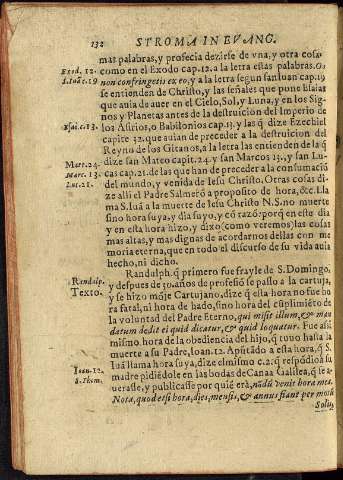 132 STROMA IN EVANG.
mas palabras, y profecia dezirse de vna, y otra cosa
Exod. 12. como en el Exodo cap. 12. a la letra estas palabras. Os
S. Iuā c. 19 non confringetis ex eo, y a la letra segun san Iuan cap. 19
se entienden de Christo, y las señales que pone Esaias
que auia de auer en el Cielo, Sol, y Luna, y en los Sig-
nos y Planetas antes de la destruicion del Imperio de
Esai. c. 13. los Assirios, o Babilonios cap. 13. y las q̃ dize Ezechiel
capite 32. que auian de preceder a la destruicion del
Reyno de los Gitanos, a la letra las entienden de la q̃
Mat. 24. dize san Mateo capit. 24. y san Marcos 13., y san Lu-
Marc. 13. cas cap. 21. de las que han de preceder a la consumaciō
Luc. 21. del mundo, y venida de Iesu Christo. Otras cosas di-
ze alli el Padre Salmerō a proposito de hora, &c. Lla
ma S. Iuā a la muerte de Iesu Christo N. S. no muerte
sino hora suya, y dia suyo, y cō razō: porq̃ en este dia
y en esta hora hizo, y dixo (como veremos) las cosas
mas altas, y mas dignas de acordarnos dellas con me
moria eterna, que en todo el discurso de su vida auia
hecho, ni dicho.
Randulp. Randulph. q̃ primero fue frayle de S. Domingo,
Texto. y despues de 30. años de professō se passo a la cartuja,
y se hizo mōje Cartujano, dize q̃ esta hora no fue ho
ra fatal, ni hora de hado, sino hora del cūplimiēto de
la voluntad del Padre Eterno, qui misit illum, & man
datum dedit ei quid dicatur, & quid loquatur. Fue assi
mismo hora de la obediencia del hijo, q̃ tuuo hasta la
Ioan. 12. muerte a su Padre, Ioan. 12. Apūtado a esta hora, q̃ S.
S. Thom. Iuā llama hora suya, dize el mismo c. 2. q̃ respōdio a su
madre pidiēdole en las bodas de Canaa Galilea, q̃ se a-
uerasse, y publicasse por quiē era, nōdū venit hora mea.
Nota, quod etsi hora, dies, mensis, & annus fiant per motū
Solis,